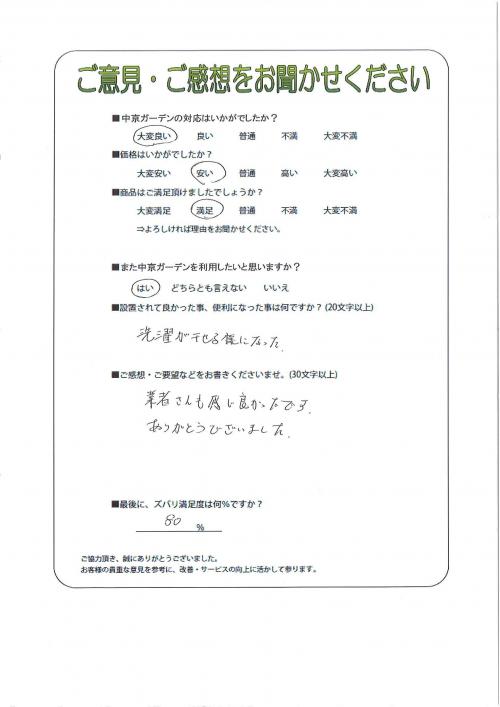 ご意見・ご感想をお聞かせください
■中京ガーデンの対応はいかがでしたか？
大変良い 良い 普通 不満 大変不満
■価格はいかがでしたか？
大変安い 安い 普通 高い 大変高い
■商品はご満足頂けましたでしょうか？
大変満足 満足 普通 不満 大変不満
⇒よろしければ理由をお聞かせください。
■また中京ガーデンを利用したいと思いますか？
はい どちらとも言えない いいえ
■設置されて良かった事、便利になった事は何ですか？(20文字以上)
洗濯が干せる様になった.
■ご感想・ご要望などをお書きくださいませ。(30文字以上)
業者さんも感じ良かったです.
ありがとうございました.
■最後に、ズバリ満足度は何％ですか？
80 ％
ご協力頂き、誠にありがとうございました。
お客様の貴重な意見を参考に、改善・サービスの向上に活かして参ります。